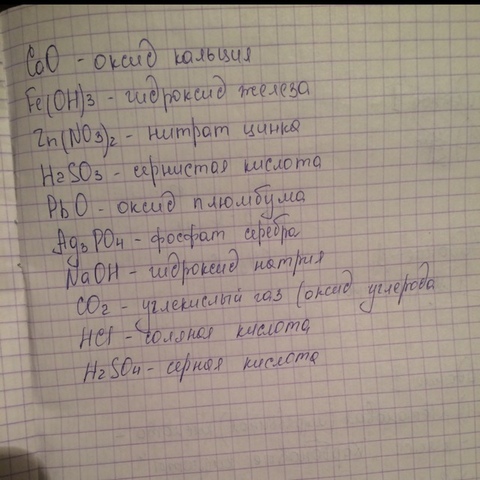 CaO - оксид кальция
Fe(OH)3 - гидроксид железа
Zn(NO3)2 - нитрат цинка
H2SO3 - сернистая кислота
PbO - оксид плюмбума
Ag3PO4 - фосфат серебра
NaOH - гидроксид натрия
CO2 - углекислый газ (оксид углерода
HCl - соляная кислота
H2SO4 - серная кислота